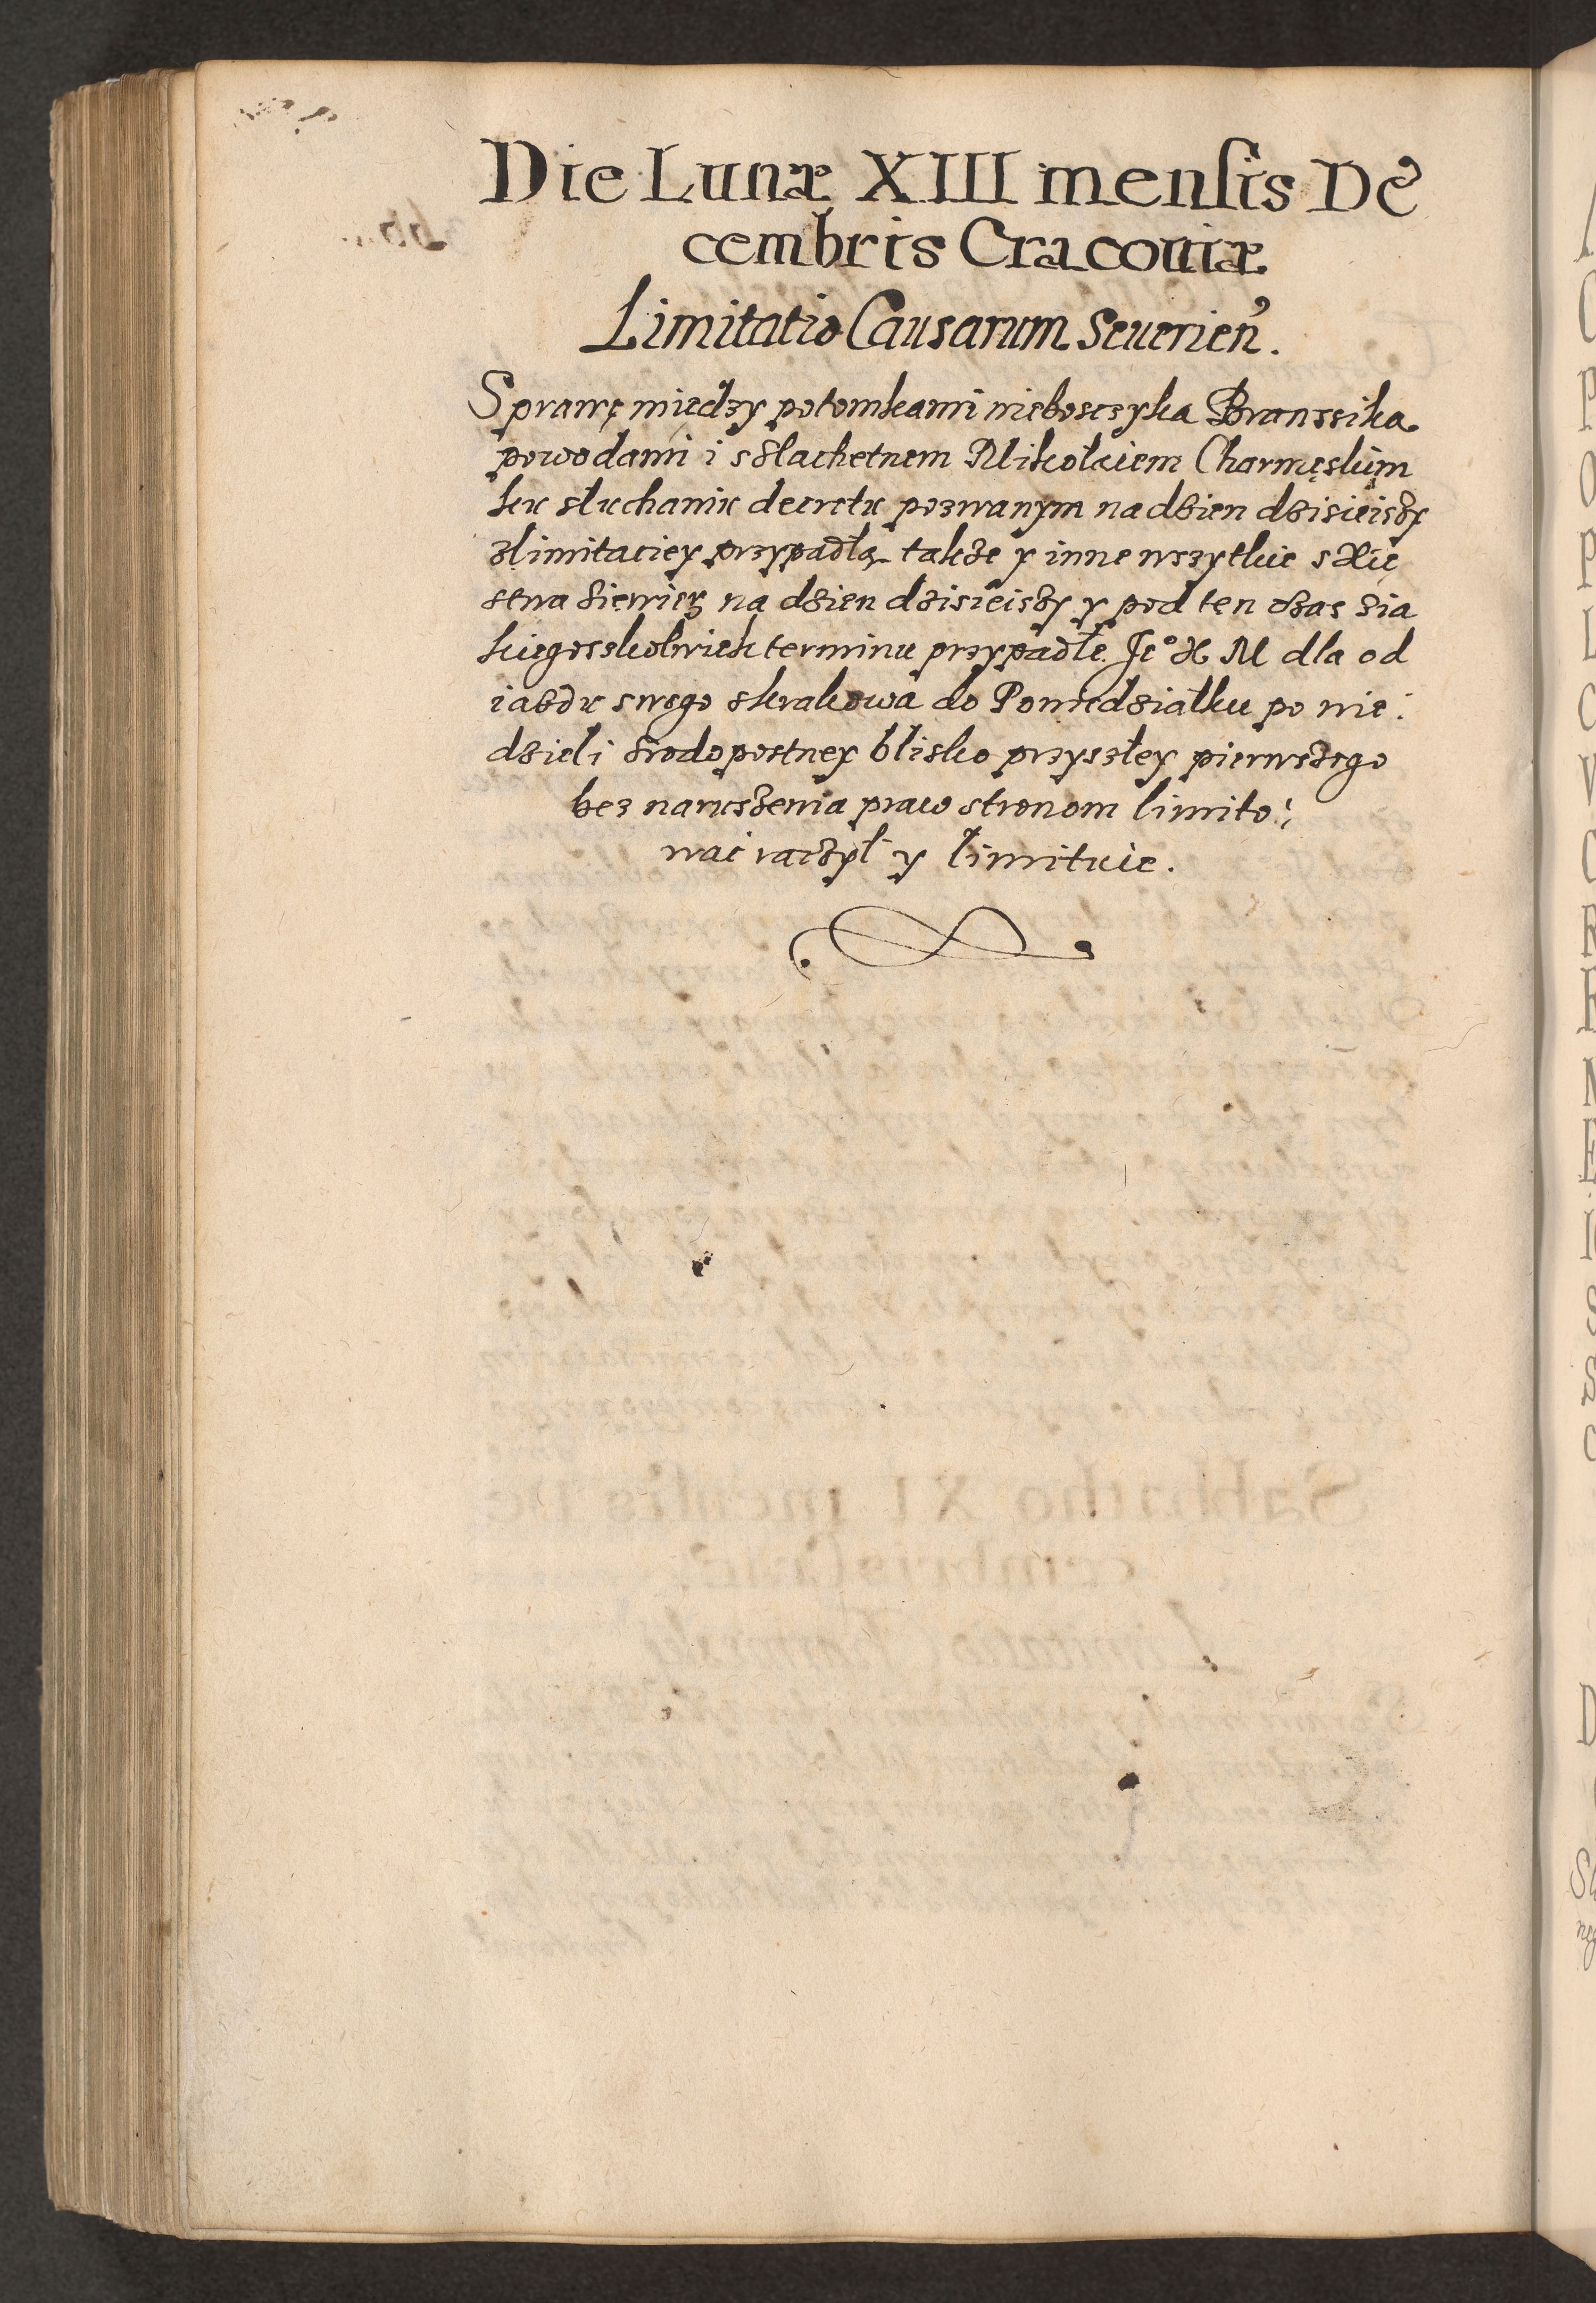 Die Lunæ XIII mensis De
cembris Cracouiæ
Limitatio Causarum Seuerien.
Sprawę między potomkami nieboszczyka Branssika
powodami i szlachetnem Mikołaiem Charmęskim
ku słuchaniu decretu pozwanym na dzien dzisieiszy
z limitaciey przypadłą także y inne wszytkie s Xię
stwa Siewierz na dzien dzisieiszy y pod ten czas z ia
kiegoszkolwiek terminu przypadłe Je° X M dla od
iazdu swego s krakowa do Poniedziałku po nie
dzieli srodopostney blisko przyszłey pierwszego
bez naruszenia praw stronom limito
wać raczył y limituie.